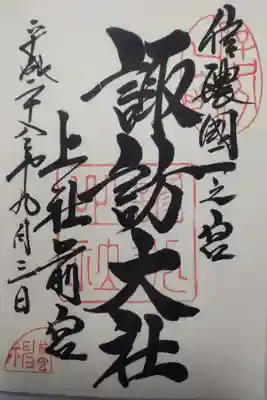 信濃國一之宮
諏訪大社
上社前宮
平成二十八年九月三日